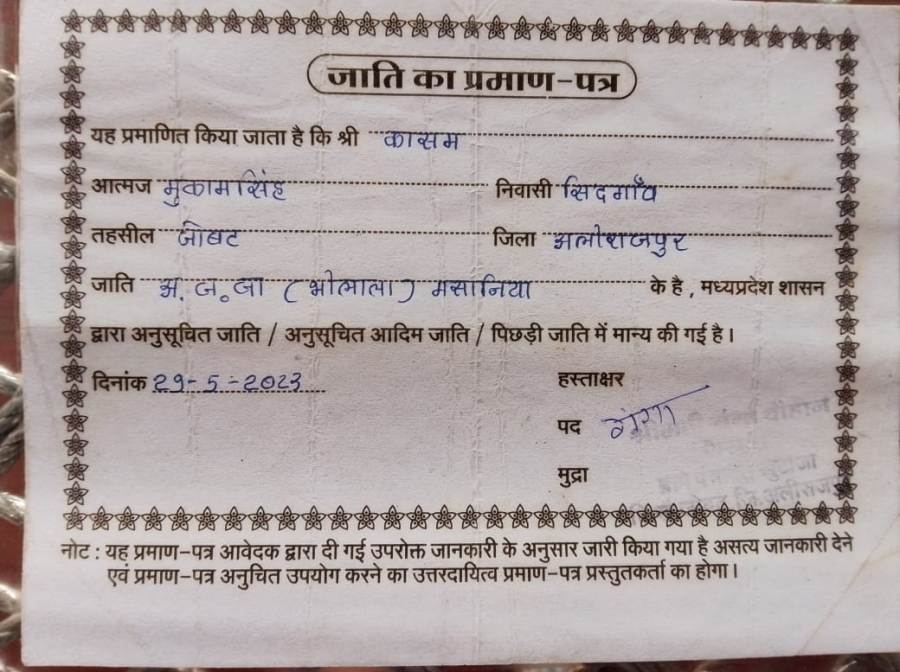 जाति का प्रमाण-पत्र
यह प्रमाणित किया जाता है कि श्री कासम
आत्मज मुकामसिंह निवासी सिदगाँव
तहसील जोबट जिला अलीराजपुर
जाति अ.ज.जा (भीलाला) मसानिया के है, मध्यप्रदेश शासन
द्वारा अनुसूचित जाति / अनुसूचित आदिम जाति / पिछड़ी जाति में मान्य की गई है।
दिनांक 29-5-2023 हस्ताक्षर
पद
मुद्रा
नोट : यह प्रमाण-पत्र आवेदक द्वारा दी गई उपरोक्त जानकारी के अनुसार जारी किया गया है असत्य जानकारी देने
एवं प्रमाण-पत्र अनुचित उपयोग करने का उत्तरदायित्व प्रमाण-पत्र प्रस्तुतकर्ता का होगा।